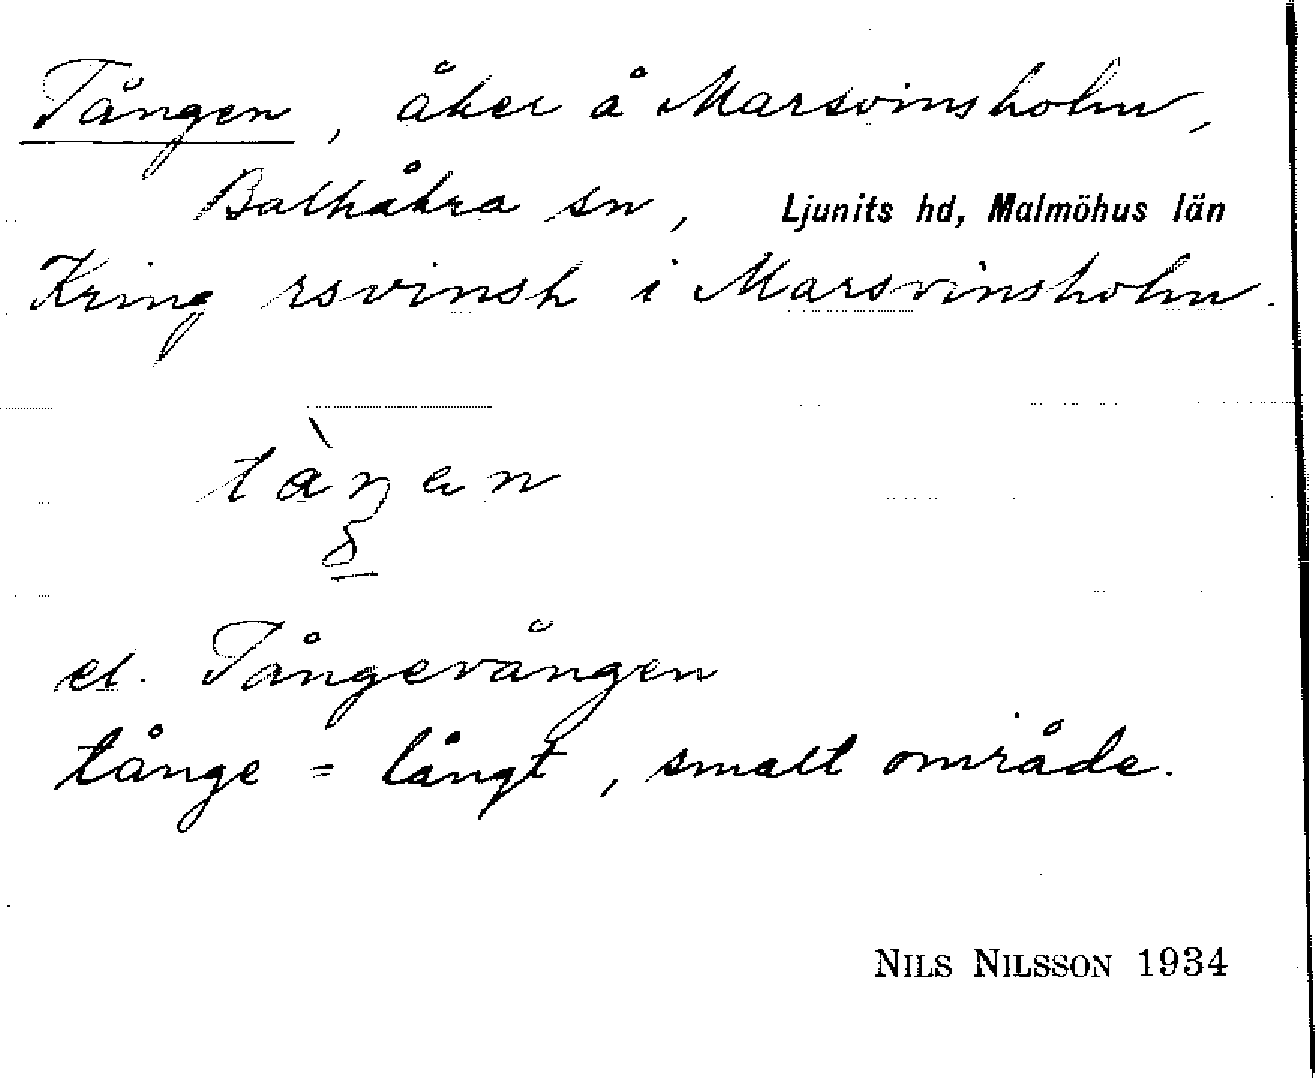 Tången, åker å Marsvinsholm,
Balkåkra sn, Ljunits hd, Malmöhus län
Kring rsvinsh i Marsvinsholm.
el. Tångevången
tånge = långt, smalt område.
NILS NILSSON 1934